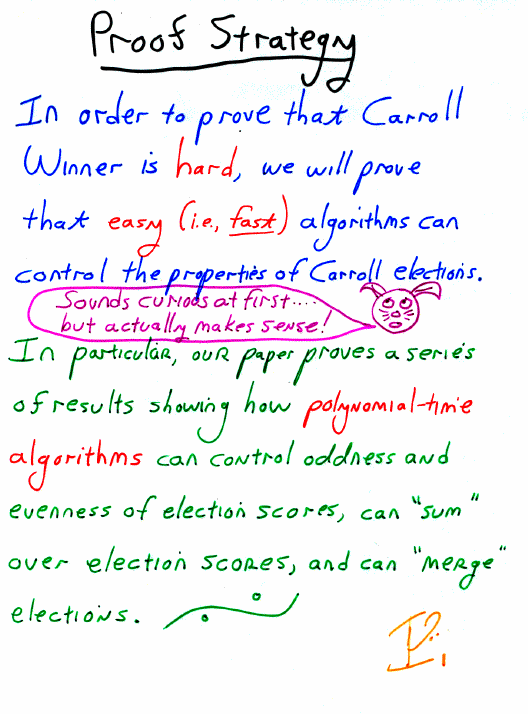 Proof Strategy
In order to prove that Carroll
Winner is hard, we will prove
that easy (i.e., fast) algorithms can
control the properties of Carroll elections.
Sounds curious at first....
but actually makes sense!
In particular, our paper proves a series
of results showing how polynomial-time
algorithms can control oddness and
evenness of election scores, can "sum"
over election scores, and can "merge"
elections.